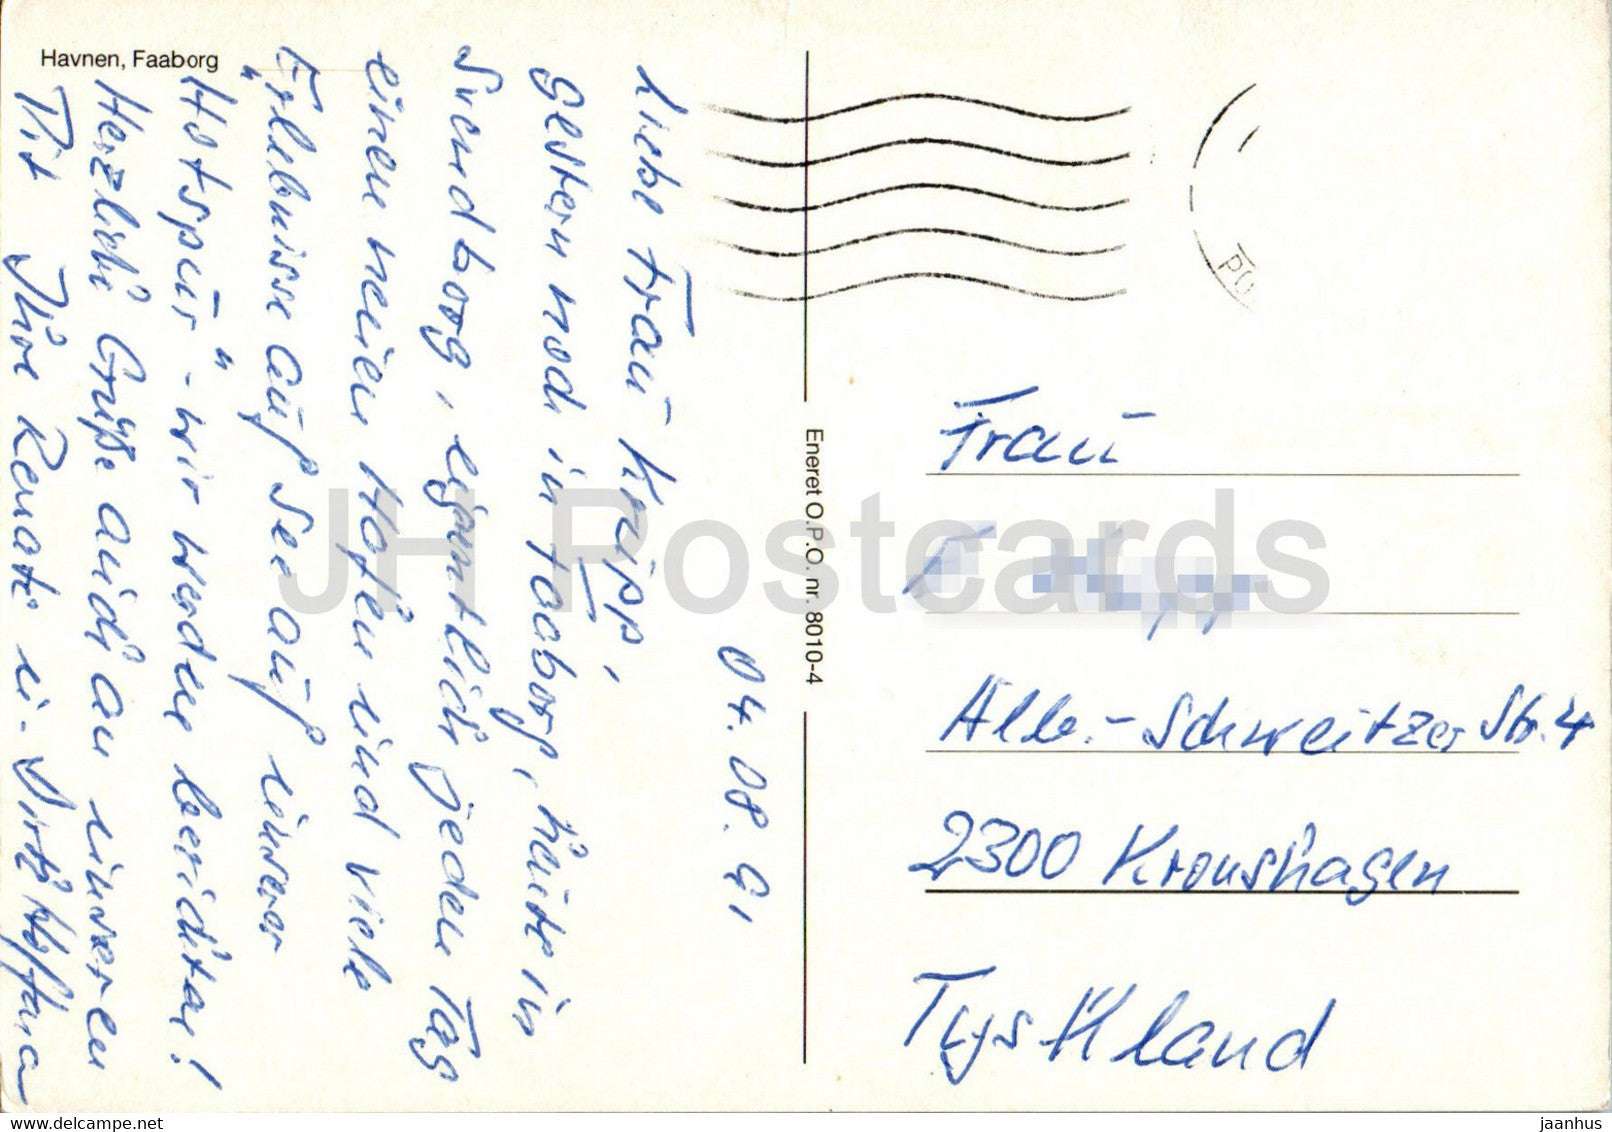 Havnen, Faaborg
04.08.91
Liebe Frau Knipp,
gestern noch in Faaborg, heute in
Svendborg, eigentlich jeden Tag
einen neuen Hafen und viele
Erlebnisse auf See auf unserer
"Hotspur" - wir werden berichten!
Herzliche Grüße auch an unseren
Pit Ihre Renate u.
Eneret O.P.O. nr. 8010-4
PO
Frau
F.
Alb.-Schweitzer Str. 4
2300 Kronshagen
Tyskland
JH Postcards
delcampe.net
jaanhus